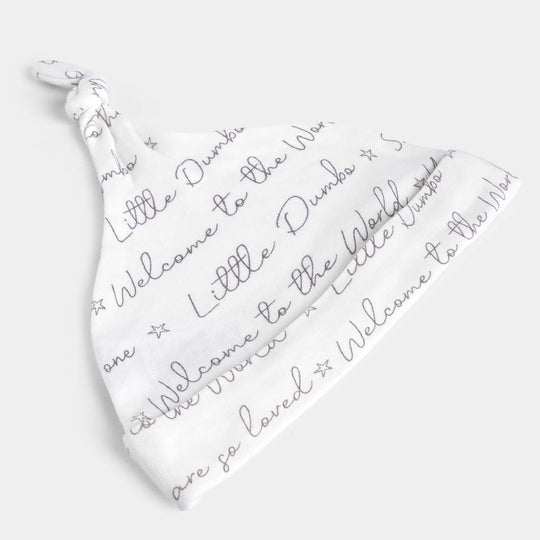 to the
Dumbo
Little Dumbo ☆ S
☆ Welcome to the World
Little Dumbo ☆
one ☆
Welcome to the World ☆
Little Dumbo
to the World
are so loved ☆ Welcome to the Worl